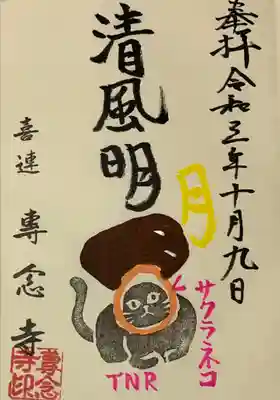 奉拝 令和三年十月九日
清風明
月
サクラネコ
TNR
喜連 專念寺
專念
寺印